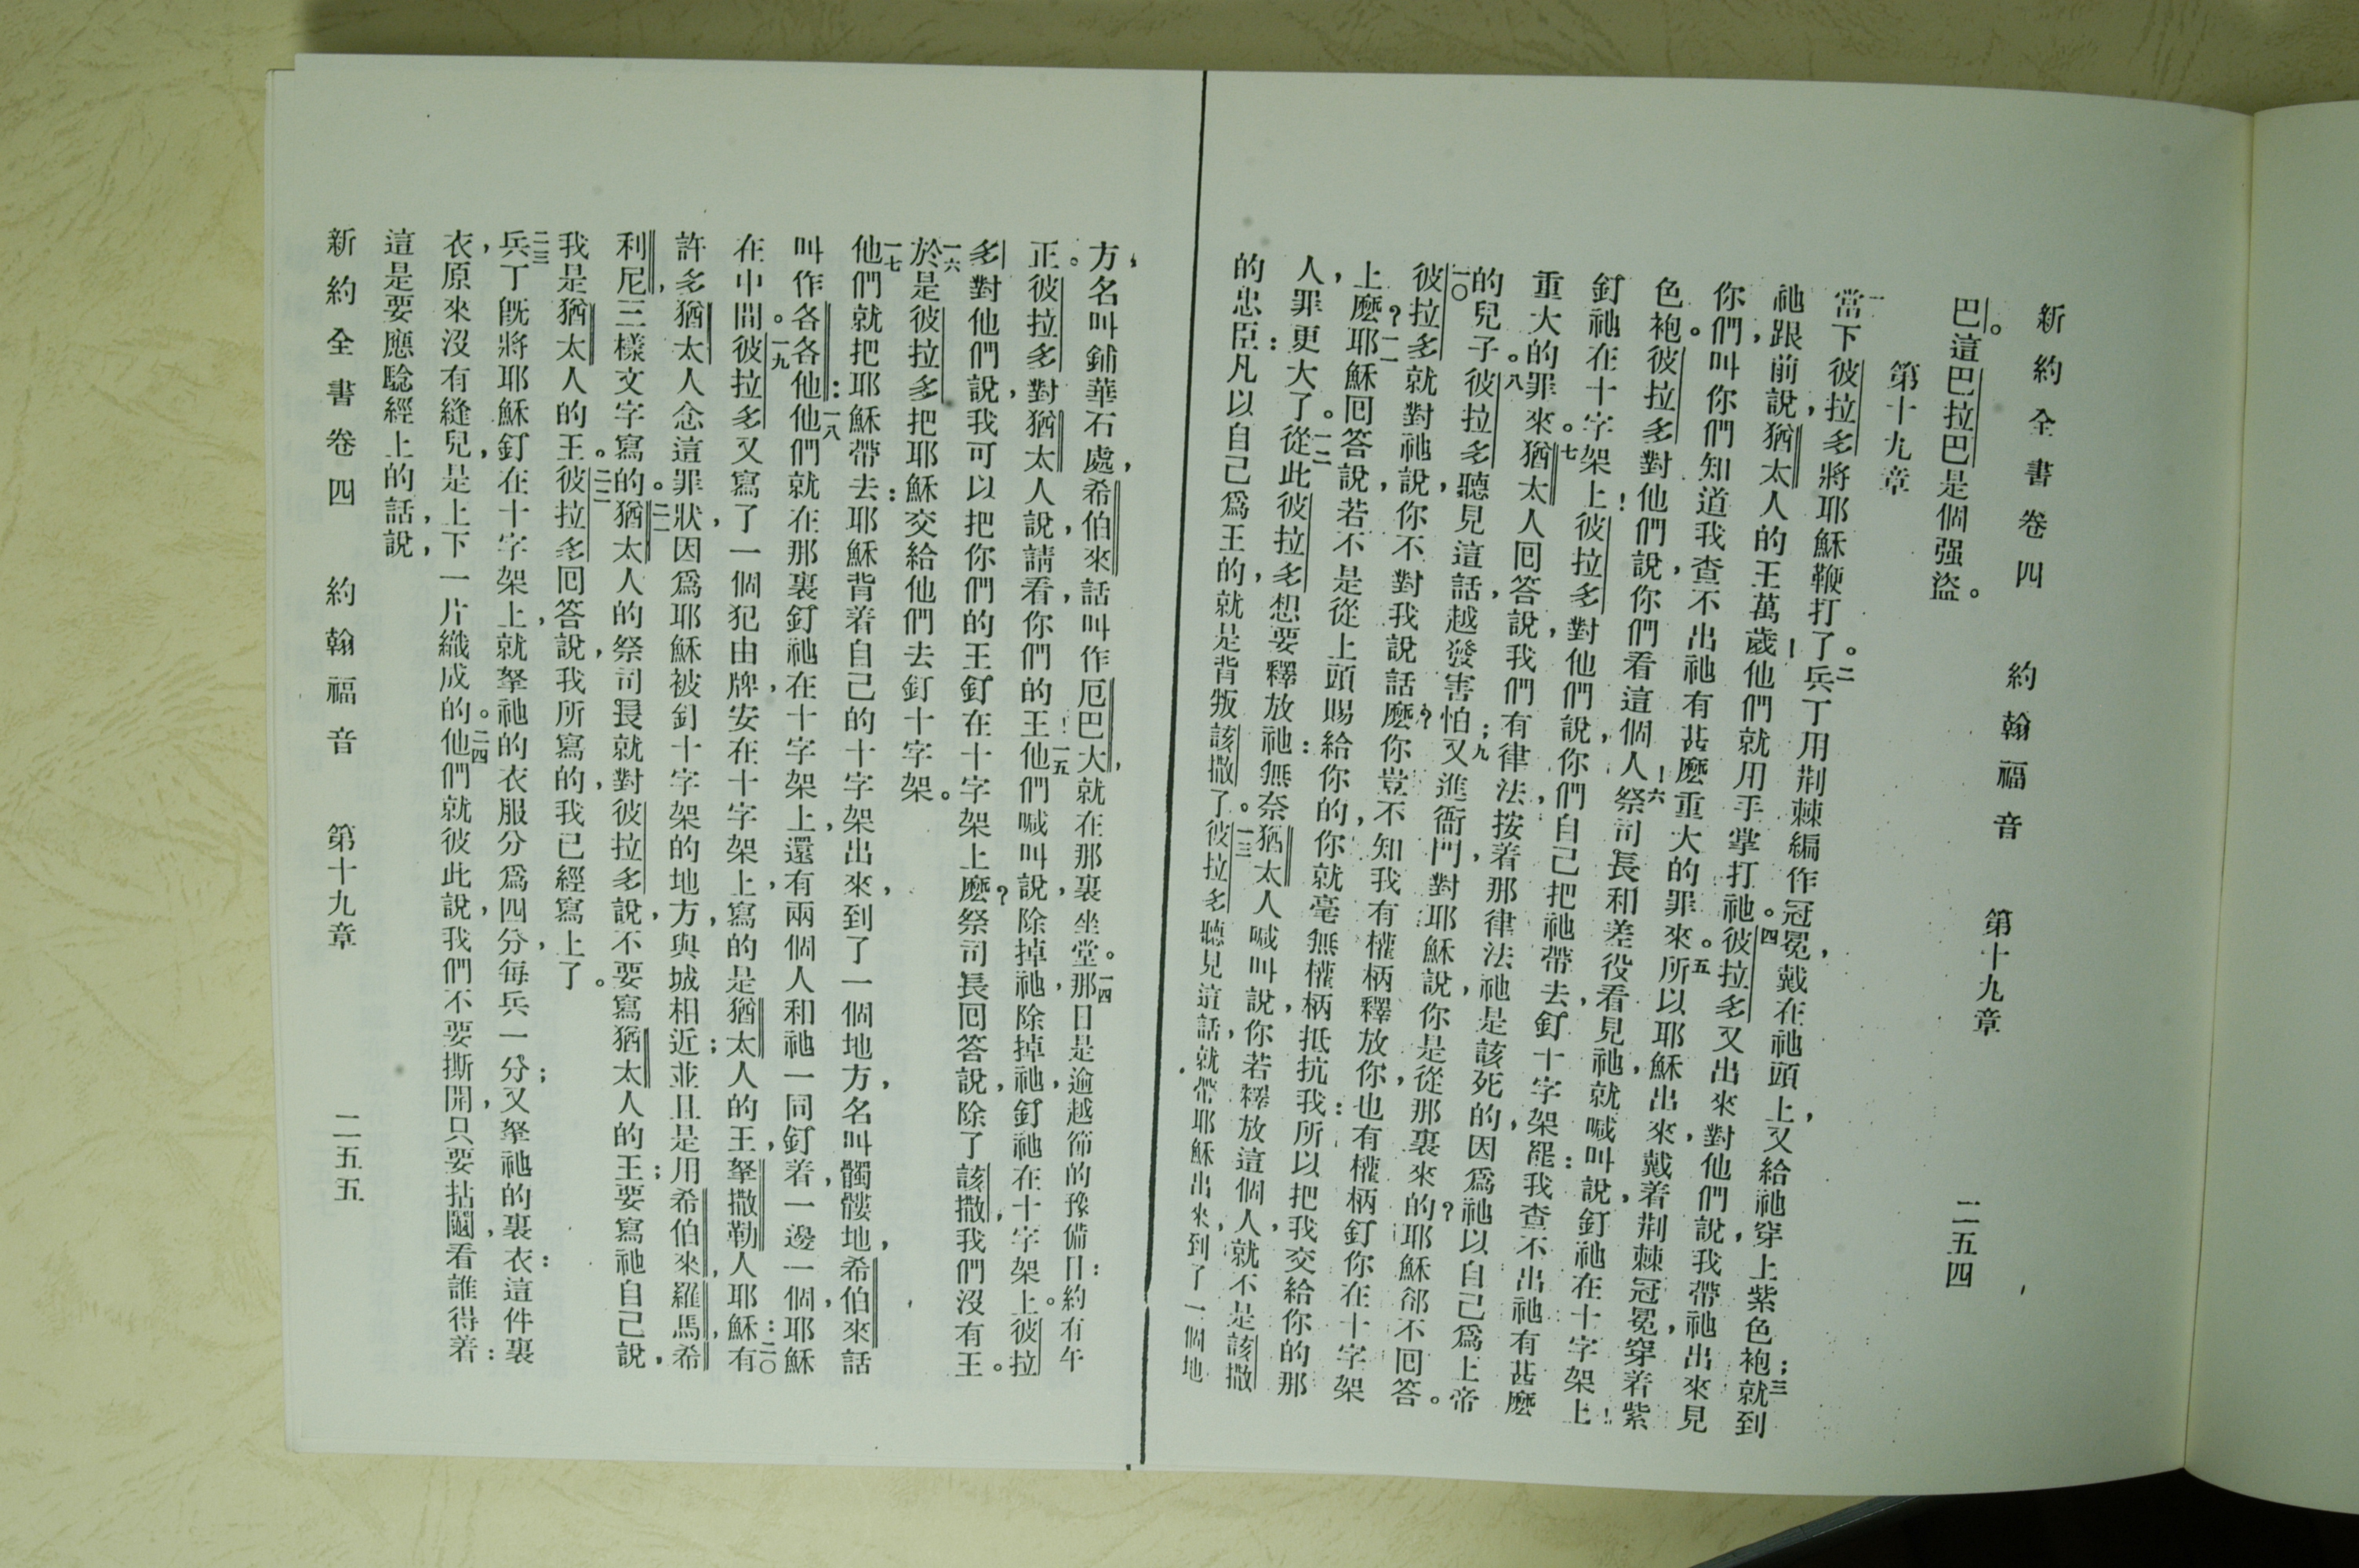 新約全書卷四　約翰福音　第十九章　二五四
巴。這巴拉巴是個强盜。
第十九章
一當下彼拉多將耶穌鞭打了。二兵丁用荆棘編作冠冕，戴在祂頭上，又給祂穿上紫色袍；三就到
祂跟前說，猶太人的王萬歲！他們就用手掌打祂。四彼拉多又出來對他們說，我帶祂出來見
你們，叫你們知道我查不出祂有甚麼重大的罪來。五所以耶穌出來，戴着荆棘冠冕，穿着紫
色袍。彼拉多對他們說，你們看這個人！六祭司長和差役看見祂，就喊叫說，釘祂在十字架上！
釘祂在十字架上！彼拉多對他們說，你們自己把祂帶去，釘十字架罷：我查不出祂有甚麼
重大的罪來。七猶太人囘答說，我們有律法，按着那律法，祂是該死的，因爲祂以自己爲上帝
的兒子。八彼拉多聽見這話，越發害怕；九又進衙門，對耶穌說，你是從那裏來的？耶穌郤不囘答。
一〇彼拉多就對祂說，你不對我說話麼？你豈不知我有權柄釋放你，也有權柄釘你在十字架
上麼？一一耶穌囘答說，若不是從上頭賜給你的，你就毫無權柄抵抗我：所以把我交給你的那
人，罪更大了。一二從此彼拉多想要釋放祂：無奈猶太人喊叫說，你若釋放這個人，就不是該撒
的忠臣：凡以自己爲王的，就是背叛該撒了。一三彼拉多聽見這話，就帶耶穌出來，到了一個地
方，名叫鋪華石處，希伯來話叫作厄巴大，就在那裏坐堂。一四那日是逾越節的豫備日：約有午
正。彼拉多對猶太人說，請看，你們的王！一五他們喊叫說，除掉祂，除掉祂，釘祂在十字架上。彼拉
多對他們說，我可以把你們的王釘在十字架上麼？祭司長囘答說，除了該撒，我們沒有王。
一六於是彼拉多把耶穌交給他們去釘十字架。
一七他們就把耶穌帶去：耶穌背着自己的十字架出來，到了一個地方，名叫髑髏地，希伯來話
叫作各各他：一八他們就在那裏釘祂在十字架上，還有兩個人和祂一同釘着，一邊一個，耶穌
在中間。一九彼拉多又寫了一個犯由牌，安在十字架上，寫的是猶太人的王，拏撒勒人耶穌：二〇有
許多猶太人念這罪狀，因爲耶穌被釘十字架的地方，與城相近；並且是用希伯來，羅馬，希
利尼，三樣文字寫的。二一猶太人的祭司長就對彼拉多說，不要寫猶太人的王；要寫祂自己說，
我是猶太人的王。二二彼拉多囘答說，我所寫的，我已經寫上了。
二三兵丁旣將耶穌釘在十字架上，就拏祂的衣服分爲四分，每兵一分；又拏祂的裏衣：這件裏
衣，原來沒有縫兒，是上下一片織成的。二四他們就彼此說，我們不要撕開，只要拈鬮，看誰得着：
這是要應騐經上的話，說，
新約全書卷四　約翰福音　第十九章　二五五